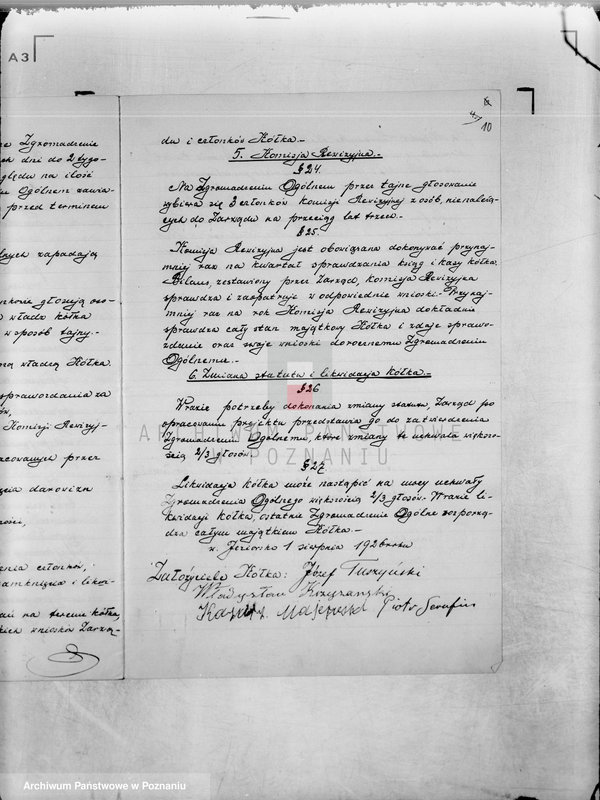 A3
na Zgromadzenie
ok dni do 2 tygo-
ględu na ilość
ie Ogólnem zawia-
przed terminem
lnych zapadają
nkowie głosują oso-
władz kółka
w sposób tajny.
władzą Kółka.
sprawozdania za
Komisji Rewizyj-
acowanych przez
darowizn
ości,
enia członków,
amknięcia i likwi-
na terenie kółka,
kich wniosków Zarzą-
10
du i członków Kółka.-
5. Komisja Rewizyjna.-
§ 24.
Na Zgromadzeniu Ogólnem przez tajne głosowanie
wybiera się 3 członków Komisji Rewizyjnej z osób, nienależą-
cych do Zarządu na przeciąg lat trzech.-
§ 25.
Komisja Rewizyjna jest obowiązana dokonywać przynaj-
mniej raz na kwartał sprawdzania ksiąg i kasy kółka.
Bilans, zestawiony przez Zarząd, Komisja Rewizyjna
sprawdza i zaopatruje w odpowiednie wnioski.- Przynaj-
mniej raz na rok Komisja Rewizyjna dokładnie
sprawdza cały stan majątkowy Kółka i zdaje sprawo-
zdanie oraz swoje wnioski dorocznemu Zgromadzeniu
Ogólnemu.-
6. Zmiana statutu i likwidacja kółka.-
§ 26
W razie potrzeby dokonania zmiany statutu, Zarząd po
opracowaniu projektu przedstawia go do zatwierdzenia
Zgromadzeniu Ogólnemu, które zmiany te uchwala większo-
ścią 2/3 głosów.-
§ 27
Likwidacja kółka może nastąpić na mocy uchwały
Zgromadzenia Ogólnego większością 2/3 głosów. W razie li-
kwidacji kółka, ostatnie Zgromadzenie Ogólne rozporzą-
dza całym majątkiem Kółka.-
w. Jeziorsko 1 sierpnia 1926 roku
Założyciele Kółka: Józef Tuszyński
Władysław Krzyżański
Piotr Serafin
ARCHIWUM PAŃSTWOWE
W POZNANIU
Archiwum Państwowe w Poznaniu